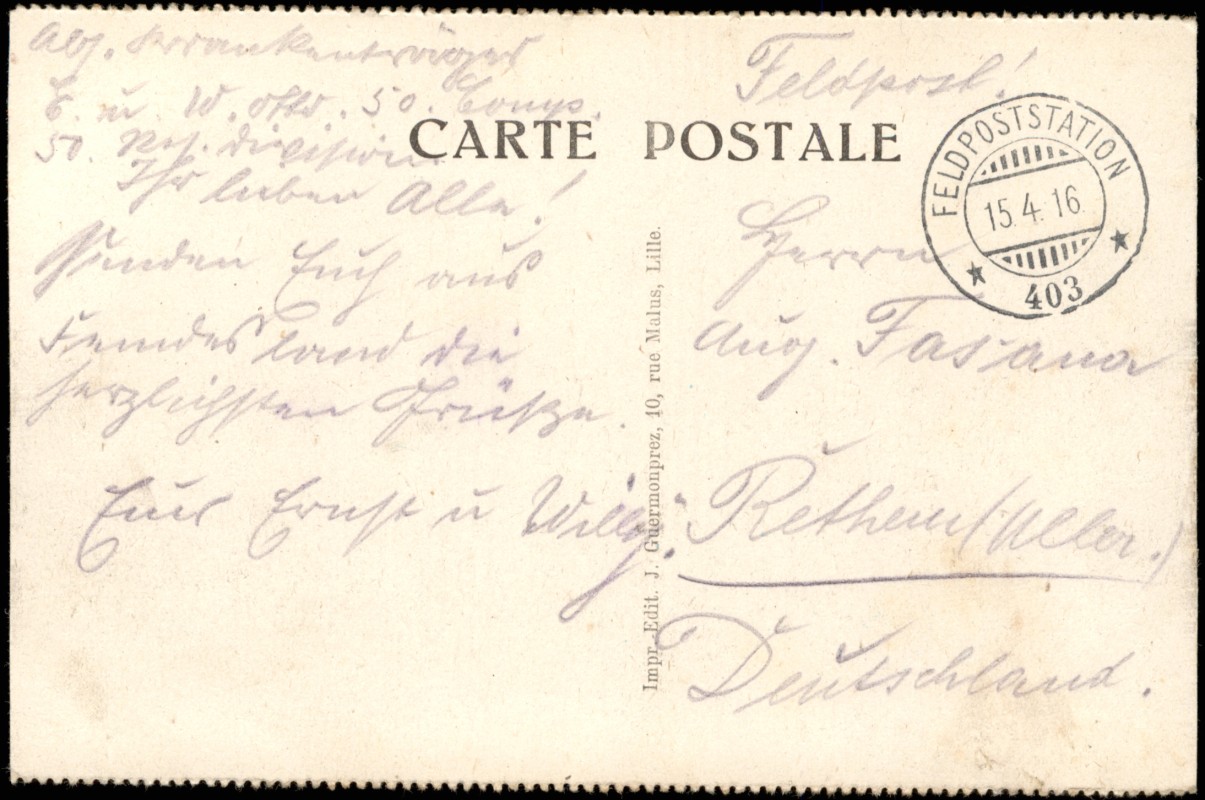 Abs. Krankenträger
E. u W. Otto. 50. Comp.
50. Res. Division
CARTE POSTALE
Ihr lieben Alle!
Senden Euch aus
Feindesland die
herzlichsten Grüße.
Eure Ernst u Willy.
Impr.-Edit. J. Guermonprez, 10, rue Malus, Lille.
Feldpost!
FELDPOSTSTATION
15.4.16.
403
Herrn
Aug. Fasana
Rethem (Aller.)
Deutschland.